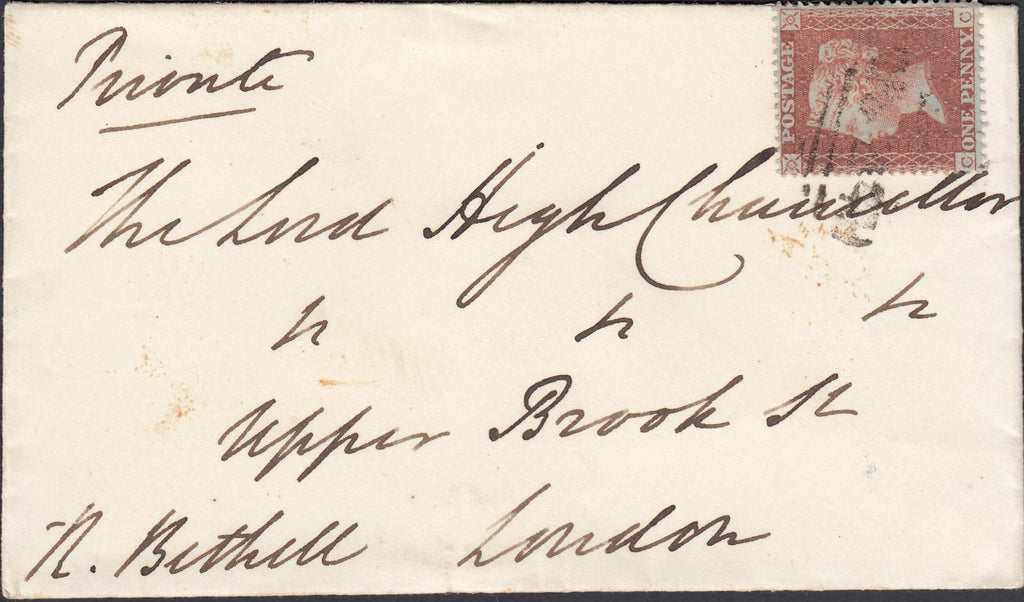 Private
POSTAGE
ONE PENNY
C C
The Lord High Chancellor
" " "
Upper Brook St
R. Bethell London